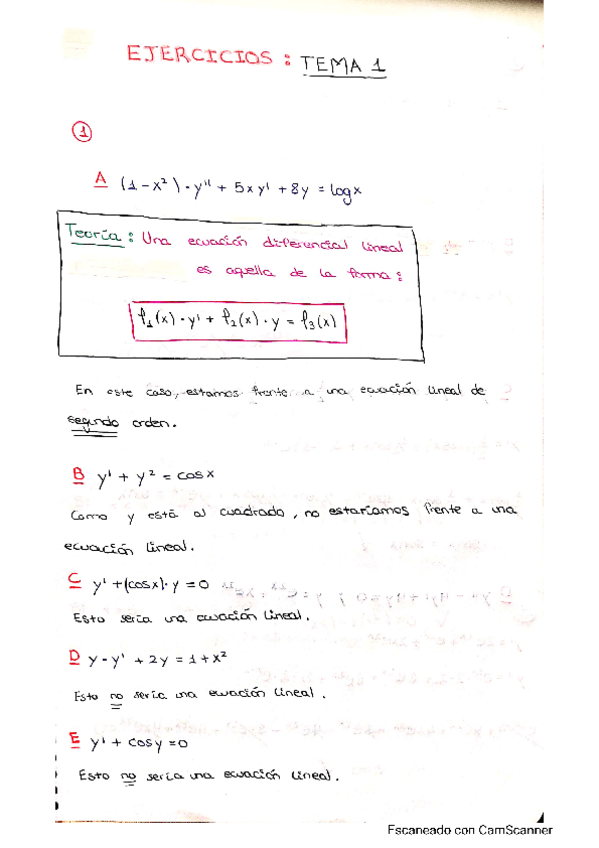 EJERCICIOS: TEMA 1
①
A (1-x²)·y'' + 5xy' + 8y = log x
Teoría: Una ecuación diferencial lineal
es aquella de la forma:
f₁(x)·y' + f₂(x)·y = f₃(x)
En este caso, estamos frente a una ecuación lineal de
segundo orden.
B y' + y² = cos x
Como y está al cuadrado, no estaríamos frente a una
ecuación lineal.
C y' + (cosx)·y = 0
Esto sería una ecuación lineal.
D y·y' + 2y = 1+x²
Esto no sería una ecuación lineal.
E y' + cosy = 0
Esto no sería una ecuación lineal.
Escaneado con CamScanner